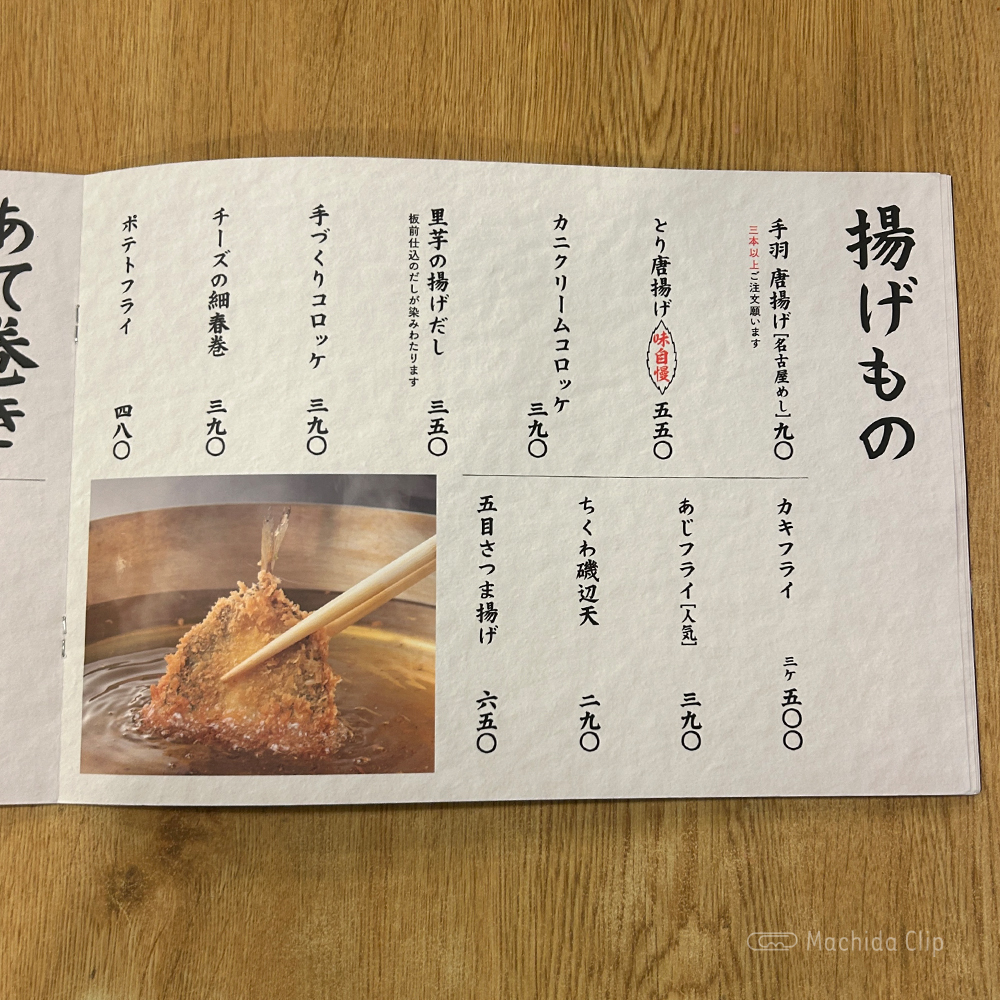 揚げもの
手羽 唐揚げ[名古屋めし] 九〇
三本以上ご注文願います
とり唐揚げ 味自慢 五五〇
カニクリームコロッケ 三九〇
里芋の揚げだし 三五〇
板前仕込のだしが染みわたります
手づくりコロッケ 三九〇
チーズの細春巻 三九〇
ポテトフライ 四八〇
カキフライ 三ケ 五〇〇
あじフライ[人気] 三九〇
ちくわ磯辺天 二九〇
五目さつま揚げ 六五〇
あて巻き
Machida Clip